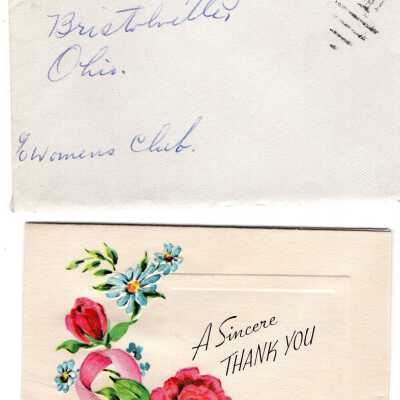 Bristolville,
Ohio.
Womens Club.
A Sincere
THANK YOU